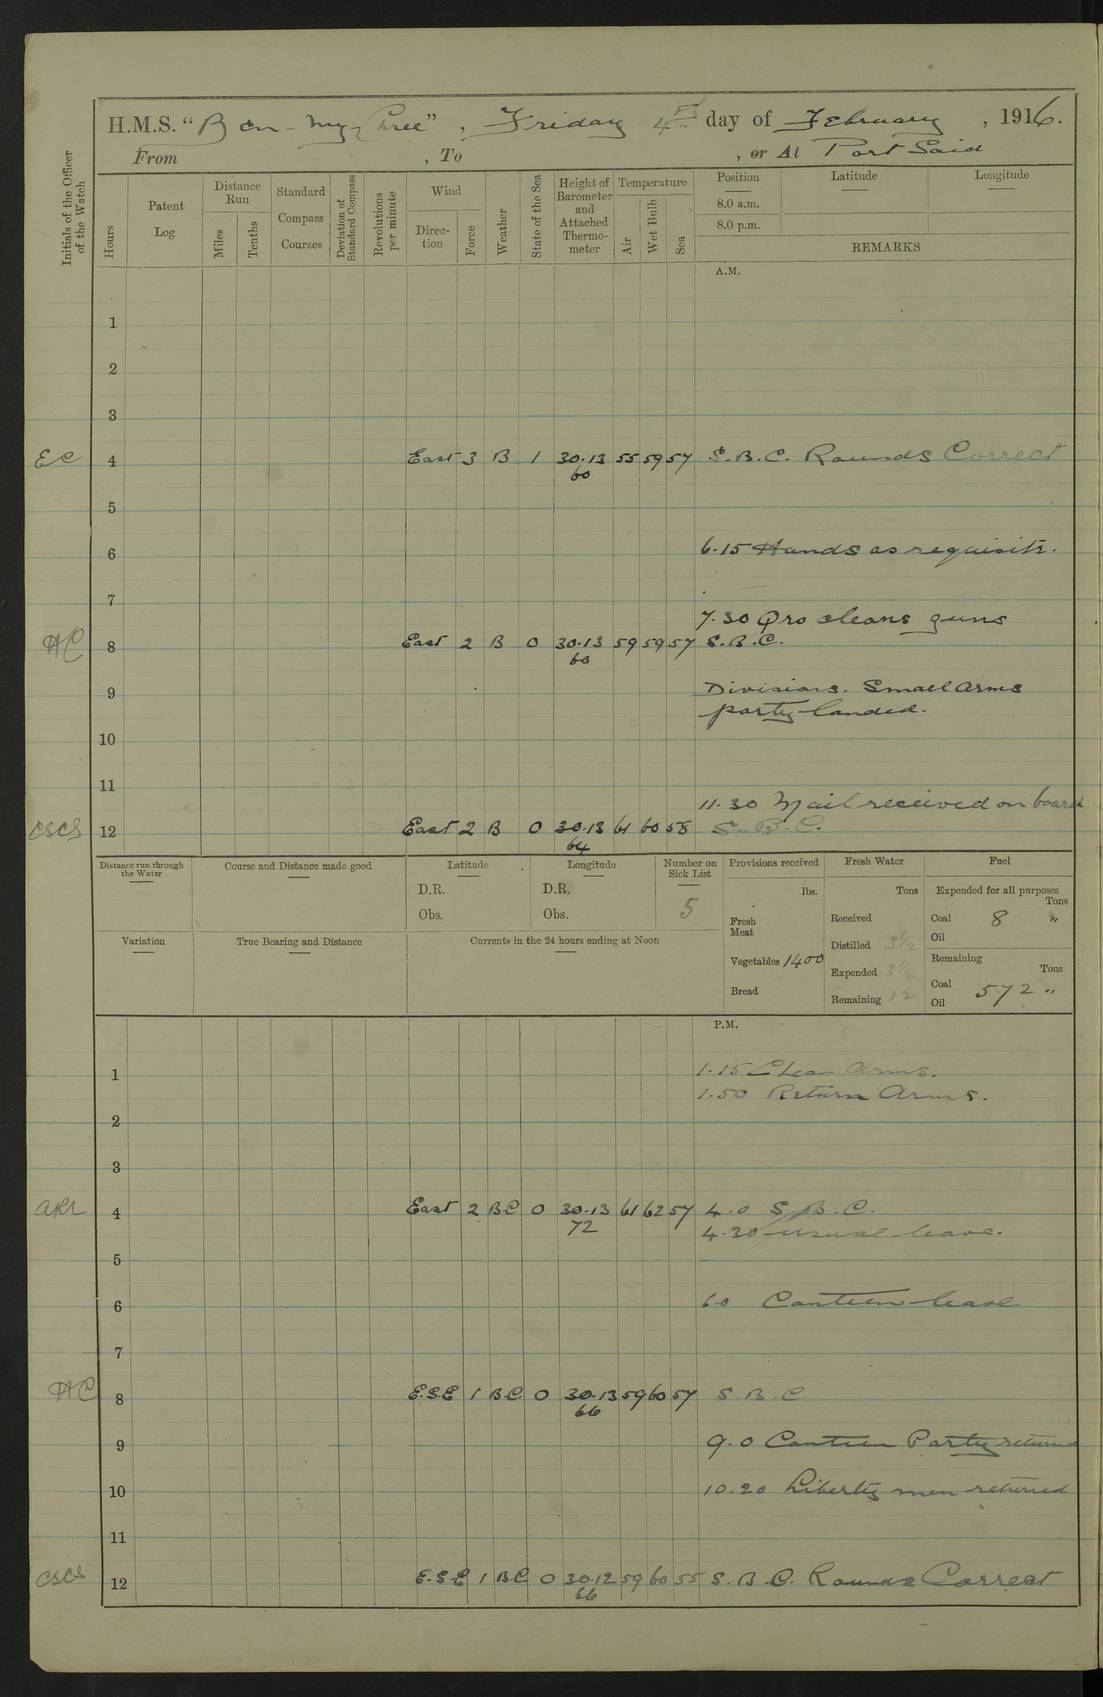 H.M.S. "Ben-my-Chree", Friday 4th day of February, 1916.
From , To , or At Port Said
Initials of the Officer of the Watch
Hours
Patent Log
Distance Run
Miles
Tenths
Standard Compass Courses
Deviation of Standard Compass
Revolutions per minute
Wind
Direction
Force
Weather
State of the Sea
Height of Barometer and Attached Thermometer
Temperature
Air
Wet Bulb
Sea
Position Latitude Longitude
8.0 a.m.
8.0 p.m.
REMARKS
A.M.
1
2
3
EC 4 East 3 B 1 30.13 55 59 57 S.B.C. Rounds Correct
60
5
6 6.15 Hands as requisite.
7
7.30 Qrs cleans guns
HC 8 East 2 B 0 30.13 59 59 57 S.B.C.
60
9 Divisions. Small arms
party landed.
10
11
11.30 Mail received on board
CSCS 12 East 2 B 0 30.13 61 60 58 S.B.C.
64
Distance run through the Water
Course and Distance made good
Latitude
D.R.
Obs.
Longitude
D.R.
Obs.
Number on Sick List
5
Provisions received
lbs.
Fresh Meat
Vegetables 1400
Bread
Fresh Water
Tons
Received
Distilled 3½
Expended 3½
Remaining 12
Fuel
Expended for all purposes
Tons
Coal 8 "
Oil
Remaining
Tons
Coal 572 "
Oil
Variation
True Bearing and Distance
Currents in the 24 hours ending at Noon
P.M.
1 1.15 Clean Arms.
1.50 Return Arms.
2
3
4 East 2 B.C 0 30.13 61 62 57 4.0 S.B.C.
72 4.20 usual leave.
5
6 6.0 Canteen leave
7
HC 8 E.S.E 1 B.C. 0 30.13 59 60 57 S.B.C
66
9 9.0 Canteen Party returned
10 10.20 Liberty men returned
11
CSCS 12 E.S.E 1 B.C 0 30.12 59 60 55 S.B.C. Rounds Correct
66